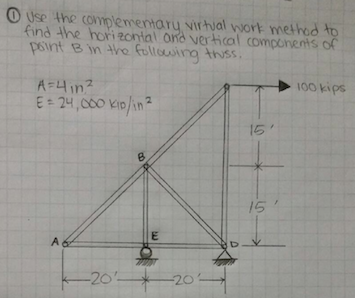 ① Use the complementary virtual work method to
find the horizontal and vertical components of
point B in the following truss.
A=4in²
E=24,000 kip/in²
100 kips
15'
B
15'
A
E
D
20'
20'